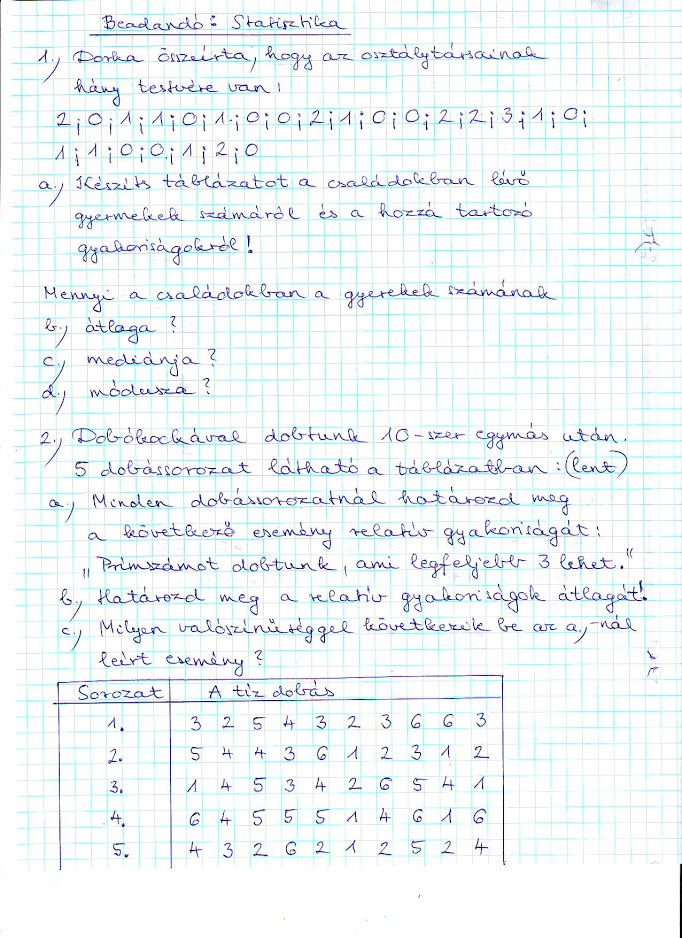 Beadandó: Statisztika
1., Dorka összeírta, hogy az osztálytársainak
hány testvére van:
2; 0; 1; 1; 0; 1; 0; 0; 2; 1; 0; 0; 2; 2; 3; 1; 0;
1; 1; 0; 0; 1; 2; 0
a., Készíts táblázatot a családokban lévő
gyermekek számáról és a hozzá tartozó
gyakoriságokról!
Mennyi a családokban a gyerekek számának
b., átlaga?
c., mediánja?
d., módusza?
2., Dobókockával dobtunk 10-szer egymás után.
5 dobássorozat látható a táblázatban: (lent)
a., Minden dobássorozatnál határozd meg
a következő esemény relatív gyakoriságát:
„Prímszámot dobtunk, ami legfeljebb 3 lehet."
b., Határozd meg a relatív gyakoriságok átlagát!
c., Milyen valószínűséggel következik be az a,-nál
leírt esemény?
Sorozat A tíz dobás
1. 3 2 5 4 3 2 3 6 6 3
2. 5 4 4 3 6 1 2 3 1 2
3. 1 4 5 3 4 2 6 5 4 1
4. 6 4 5 5 5 1 4 6 1 6
5. 4 3 2 6 2 1 2 5 2 4